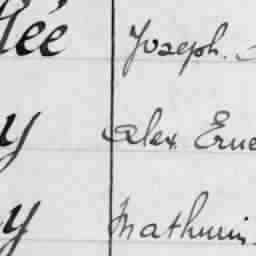 lée Joseph.
y Alex Erne
y Mathurin